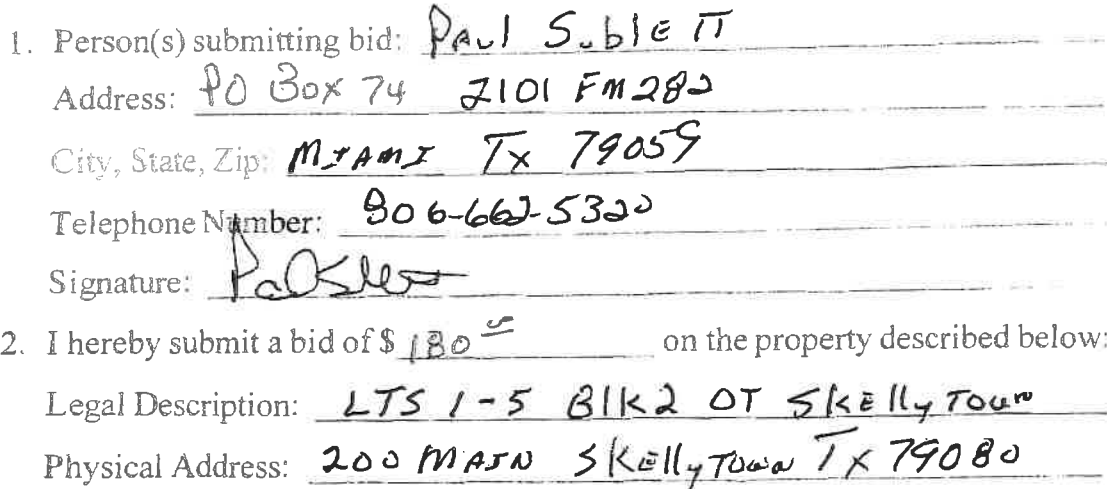 1. Person(s) submitting bid: Paul Sublett
Address: PO Box 74 2101 FM 282
City, State, Zip: MIAMI Tx 79059
Telephone Number: 806-662-5320
Signature:
2. I hereby submit a bid of $ 180 on the property described below:
Legal Description: LTS 1-5 Blk2 OT SkEllyTown
Physical Address: 200 MAIN SkEllyTown Tx 79080